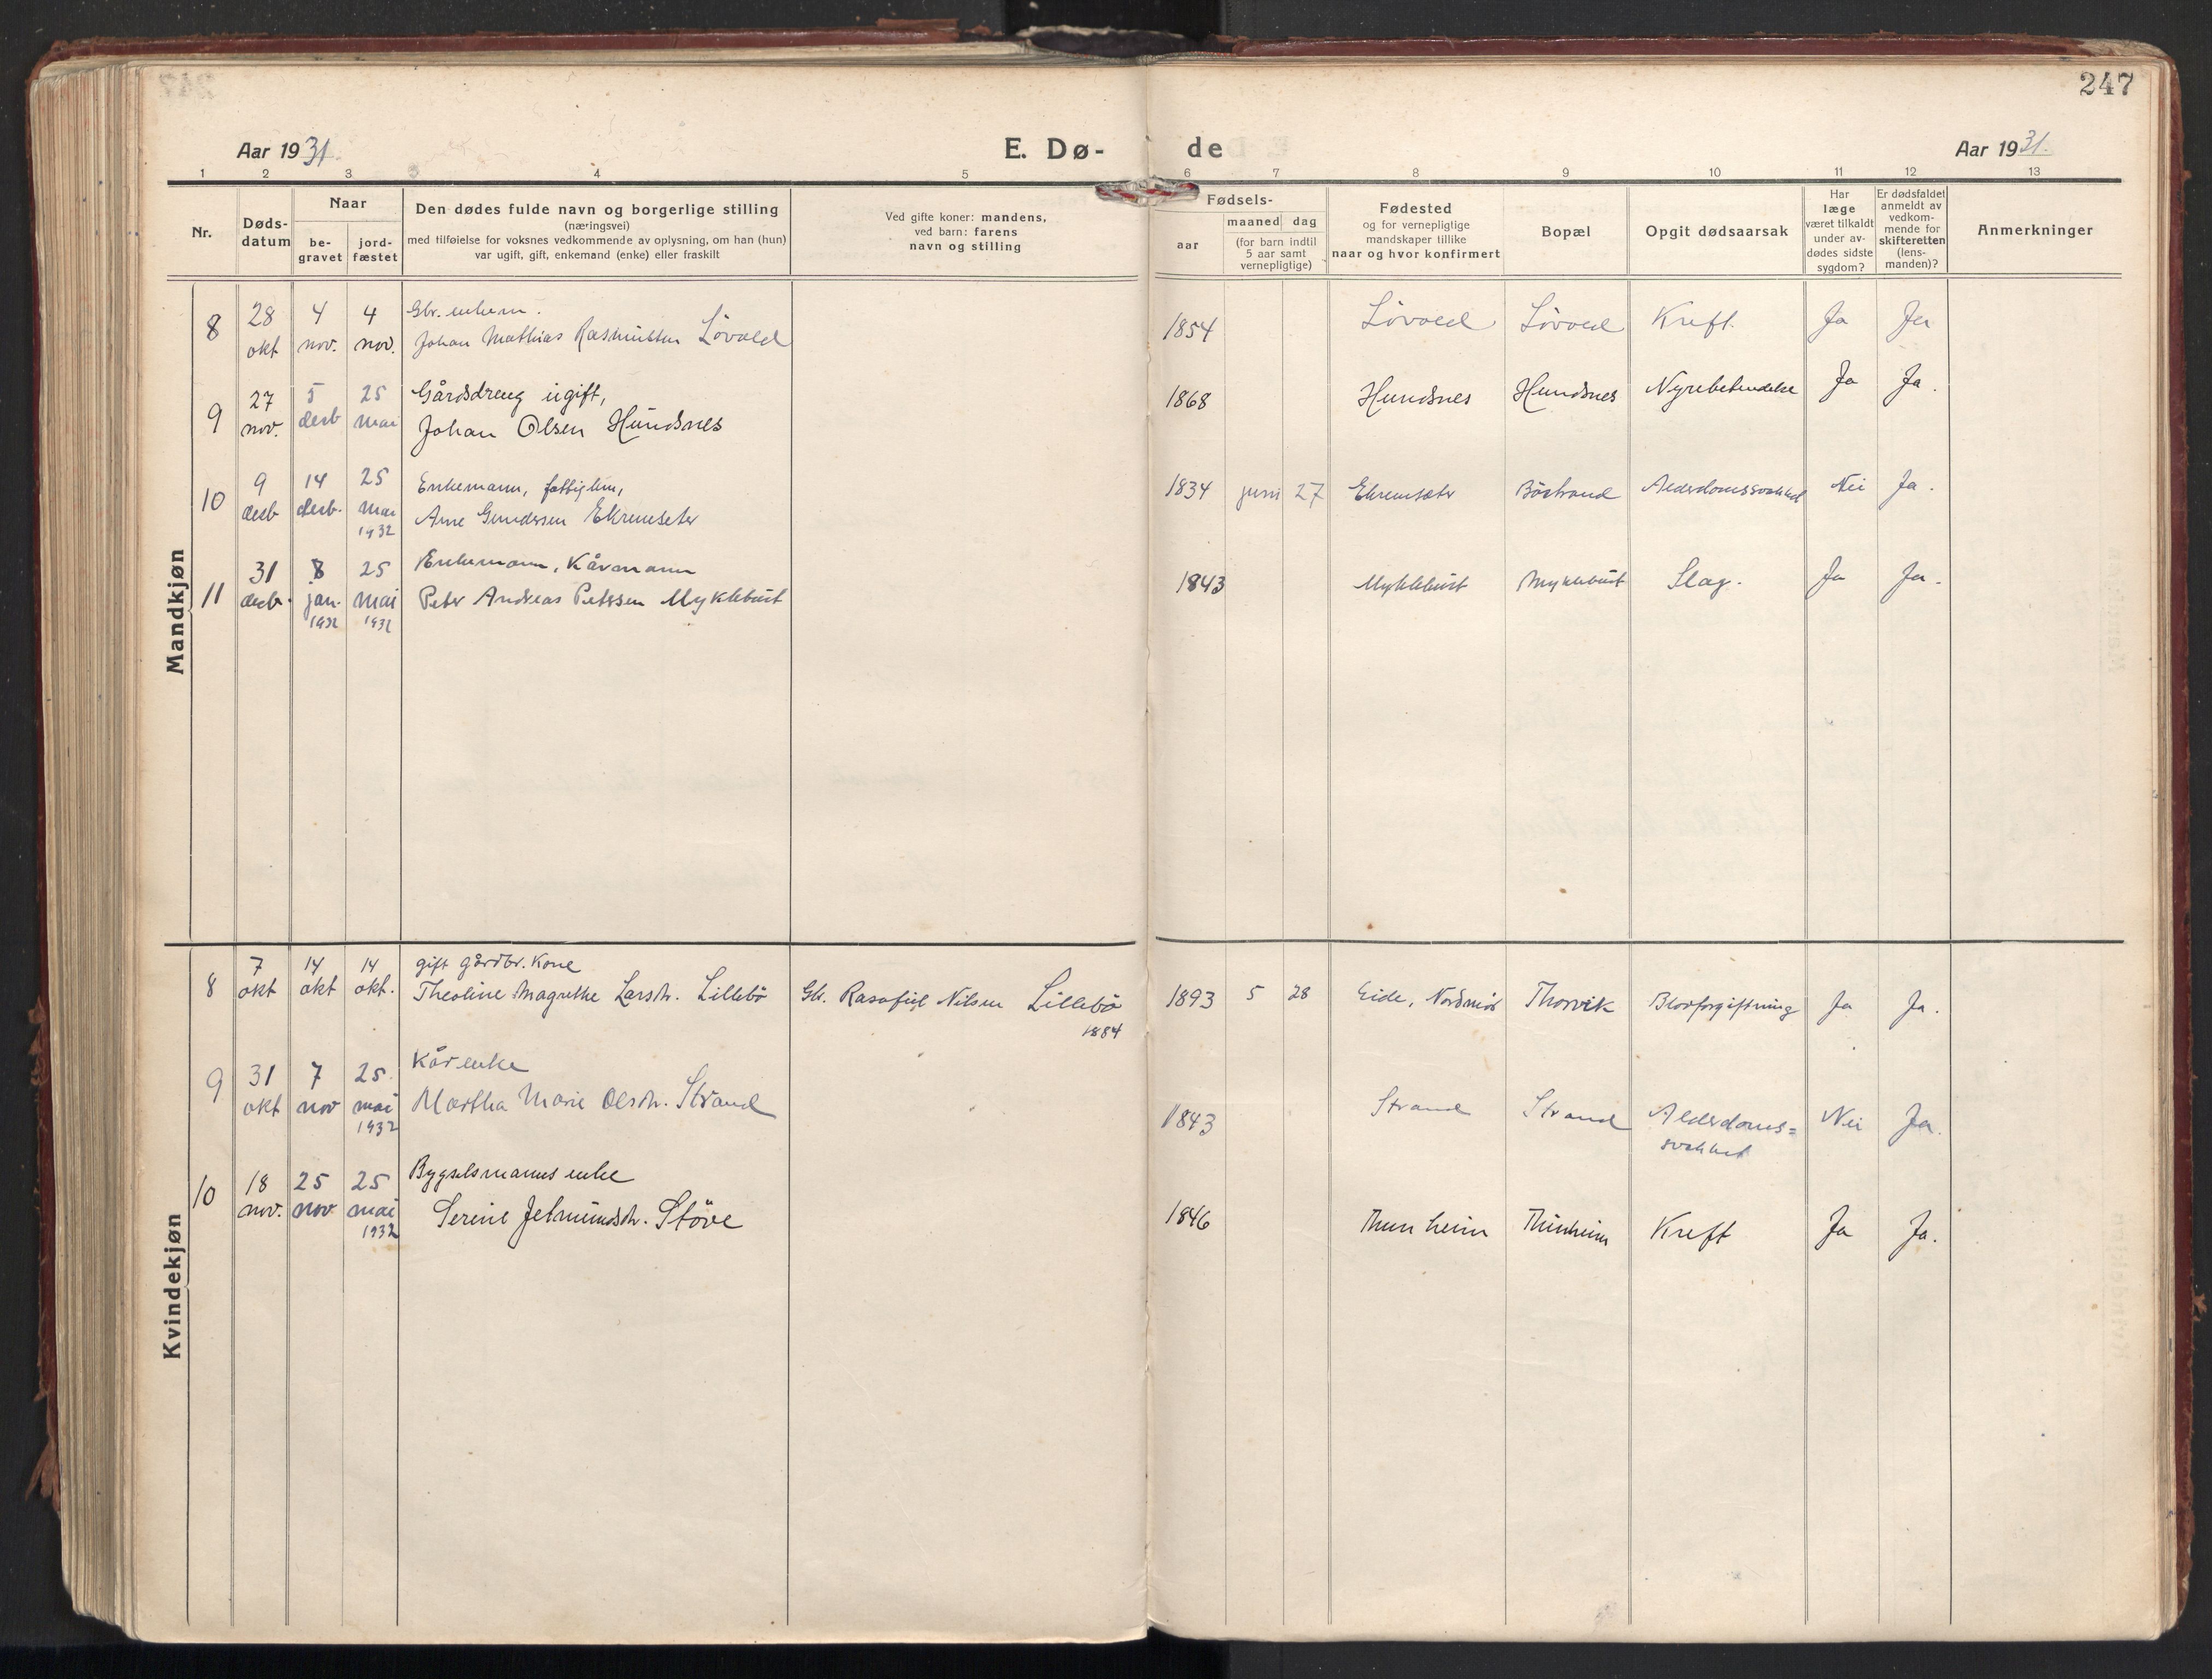 247
Aar 1931.
E. Dø-
de
Aar 1931.
1 2 3 4 5 6 7 8 9 10 11 12 13
Nr.
Døds-
datum
Naar
be-
gravet
jord-
fæstet
Den dødes fulde navn og borgerlige stilling
(næringsvei)
med tilføielse for voksnes vedkommende av oplysning, om han (hun)
var ugift, gift, enkemand (enke) eller fraskilt
Ved gifte koner: mandens,
ved barn: farens
navn og stilling
Fødsels-
aar
maaned dag
(for barn indtil
5 aar samt
vernepligtige)
Fødested
og for vernepligtige
mandskaper tillike
naar og hvor konfirmert
Bopæl
Opgit dødsaarsak
Har
læge
været tilkaldt
under av-
dødes sidste
sygdom?
Er dødsfaldet
anmeldt av
vedkom-
mende for
skifteretten
(lens-
manden)?
Anmerkninger
Mandkjøn
8 28 okt 4 nov. 4 nov.
Gbr. enkem.
Johan Mathias Rasmussen Lövold
1854 Lövold Lövold Kreft. Ja Ja
9 27 nov. 5 desb 25 mai
Gårdsdreng ugift,
Johan Olsen Hundsnes
1868 Hundsnes Hundsnes Nyrebetendelse Ja Ja.
10 9 desb 14 desb. 25 mai 1932
Enkemann, fattiglem,
Arne Gundersen Ekremseter
1834 juni 27 Ekremsæter Båstrand Alderdomssvakhet Nei Ja.
11 31 desb. 8 jan. 1932 25 mai 1932
Enkemann, Kårmann
Peter Andreas Petersen Myklebust
1843 Myklebust Myklebust Slag. Ja Ja.
Kvindekjøn
8 7 okt 14 okt 14 okt.
gift gårdbr. Kone
Theoline Magrethe Larsdtr. Lillebø
Gbr. Nilsen Lillebø
1884
1893 5 28 Eide, Nordmör Thorvik Blodforgiftning Ja Ja.
9 31 okt 7 nov 25. mai 1932
Kårenke
Martha Marie Olsdtr. Strand
1843 Strand Strand Alderdoms=
svakhet Nei Ja.
10 18 nov. 25 nov 25 mai 1932
Bygselsmanns enke
Serine Jetmundsdtr. Støve
1846 Thunheim Thunheim Kreft Ja Ja.